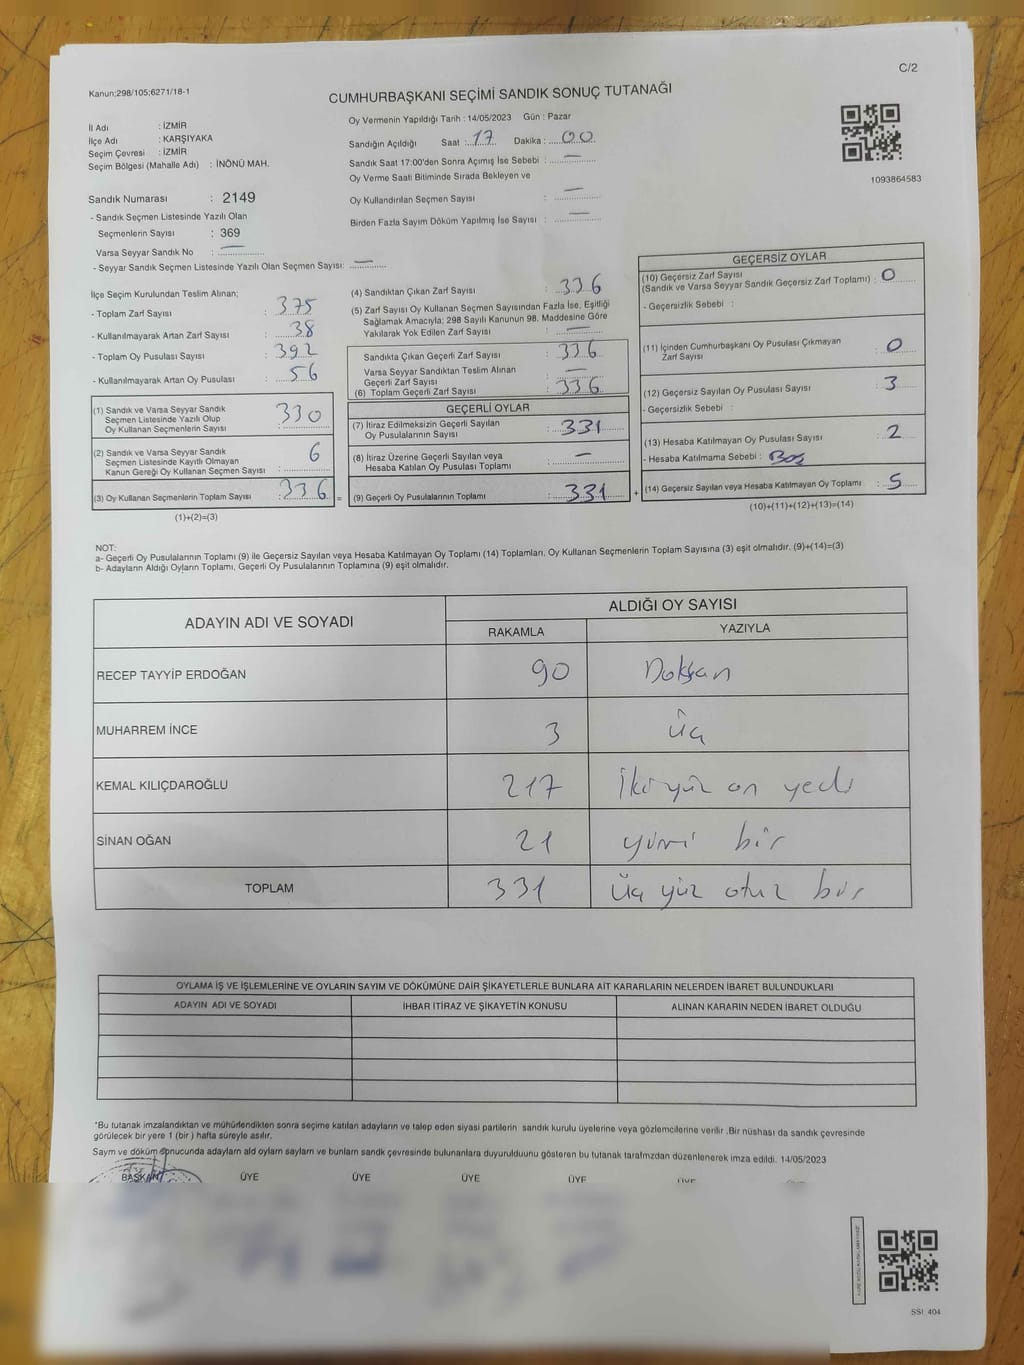 C/2
Kanun;298/105;6271/18-1
CUMHURBAŞKANI SEÇİMİ SANDIK SONUÇ TUTANAĞI
İl Adı : İZMİR
İlçe Adı : KARŞIYAKA
Seçim Çevresi : İZMİR
Seçim Bölgesi (Mahalle Adı) : İNÖNÜ MAH.
Oy Vermenin Yapıldığı Tarih : 14/05/2023 Gün : Pazar
Sandığın Açıldığı Saat : 17 Dakika : 00
Sandık Saat 17:00'den Sonra Açımış İse Sebebi : —
Oy Verme Saati Bitiminde Sırada Bekleyen ve
Oy Kullandırılan Seçmen Sayısı : —
Birden Fazla Sayım Döküm Yapılmış İse Sayısı : —
1093864583
Sandık Numarası : 2149
- Sandık Seçmen Listesinde Yazılı Olan
Seçmenlerin Sayısı : 369
Varsa Seyyar Sandık No : —
- Seyyar Sandık Seçmen Listesinde Yazılı Olan Seçmen Sayısı: —
İlçe Seçim Kurulundan Teslim Alınan;
- Toplam Zarf Sayısı : 375
- Kullanılmayarak Artan Zarf Sayısı : 38
- Toplam Oy Pusulası Sayısı : 392
- Kullanılmayarak Artan Oy Pusulası : 56
(1) Sandık ve Varsa Seyyar Sandık
Seçmen Listesinde Yazılı Olup
Oy Kullanan Seçmenlerin Sayısı : 330
(2) Sandık ve Varsa Seyyar Sandık
Seçmen Listesinde Kayıtlı Olmayan
Kanun Gereği Oy Kullanan Seçmen Sayısı : 6
(3) Oy Kullanan Seçmenlerin Toplam Sayısı : 336 =
(1)+(2)=(3)
(4) Sandıktan Çıkan Zarf Sayısı : 336
(5) Zarf Sayısı Oy Kullanan Seçmen Sayısından Fazla İse, Eşitliği
Sağlamak Amacıyla; 298 Sayılı Kanunun 98. Maddesine Göre
Yakılarak Yok Edilen Zarf Sayısı : —
Sandıkta Çıkan Geçerli Zarf Sayısı : 336
Varsa Seyyar Sandıktan Teslim Alınan
Geçerli Zarf Sayısı : —
(6) Toplam Geçerli Zarf Sayısı : 336
GEÇERLİ OYLAR
(7) İtiraz Edilmeksizin Geçerli Sayılan
Oy Pusulalarının Sayısı : 331
(8) İtiraz Üzerine Geçerli Sayılan veya
Hesaba Katılan Oy Pusulası Toplamı : —
(9) Geçerli Oy Pusulalarının Toplamı : 331 +
GEÇERSİZ OYLAR
(10) Geçersiz Zarf Sayısı
(Sandık ve Varsa Seyyar Sandık Geçersiz Zarf Toplamı) : 0
- Geçersizlik Sebebi :
(11) İçinden Cumhurbaşkanı Oy Pusulası Çıkmayan
Zarf Sayısı : 0
(12) Geçersiz Sayılan Oy Pusulası Sayısı : 3
- Geçersizlik Sebebi :
(13) Hesaba Katılmayan Oy Pusulası Sayısı : 2
- Hesaba Katılmama Sebebi : Boş
(14) Geçersiz Sayılan veya Hesaba Katılmayan Oy Toplamı : 5
(10)+(11)+(12)+(13)=(14)
NOT:
a- Geçerli Oy Pusulalarının Toplamı (9) ile Geçersiz Sayılan veya Hesaba Katılmayan Oy Toplamı (14) Toplamları, Oy Kullanan Seçmenlerin Toplam Sayısına (3) eşit olmalıdır. (9)+(14)=(3)
b- Adayların Aldığı Oyların Toplamı, Geçerli Oy Pusulalarının Toplamına (9) eşit olmalıdır.
ADAYIN ADI VE SOYADI ALDIĞI OY SAYISI
RAKAMLA YAZIYLA
RECEP TAYYİP ERDOĞAN 90 Doksan
MUHARREM İNCE 3 üç
KEMAL KILIÇDAROĞLU 217 İki yüz on yedi
SİNAN OĞAN 21 yirmi bir
TOPLAM 331 Üç yüz otuz bir
OYLAMA İŞ VE İŞLEMLERİNE VE OYLARIN SAYIM VE DÖKÜMÜNE DAİR ŞİKAYETLERLE BUNLARA AİT KARARLARIN NELERDEN İBARET BULUNDUKLARI
ADAYIN ADI VE SOYADI İHBAR İTİRAZ VE ŞİKAYETİN KONUSU ALINAN KARARIN NEDEN İBARET OLDUĞU
*Bu tutanak imzalandıktan ve mühürlendikten sonra seçime katılan adayların ve talep eden siyasi partilerin sandık kurulu üyelerine veya gözlemcilerine verilir .Bir nüshası da sandık çevresinde
görülecek bir yere 1 (bir ) hafta süreyle asılır.
Sayım ve döküm sonucunda adayların ald oyların sayların ve bunların sandk çevresinde bulunanlara duyurulduunu gösteren bu tutanak tarafmzdan düzenlenerek imza edildi. 14/05/2023
BAŞKAN ÜYE ÜYE ÜYE ÜYE ÜYE
SSI 404